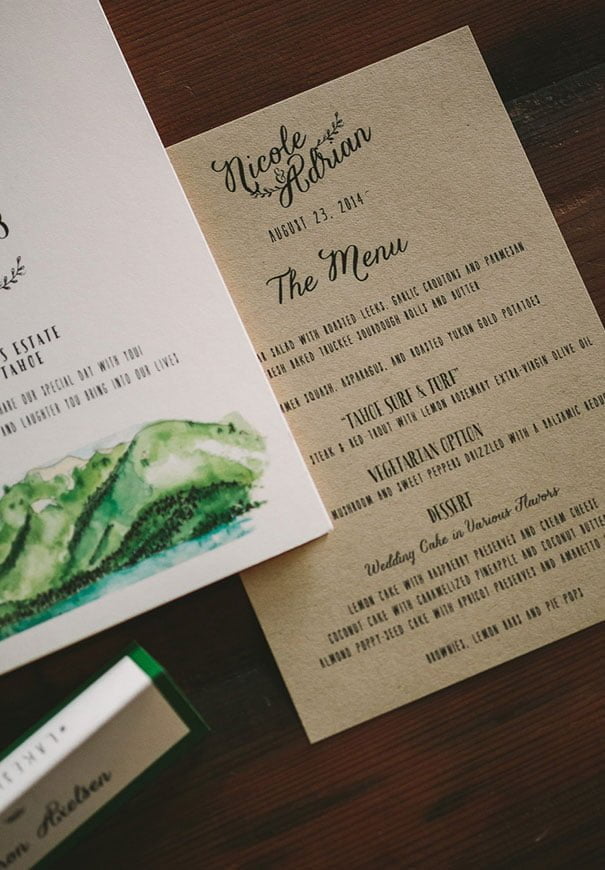 Nicole
&
Adrian
AUGUST 23, 2014
The Menu
SALAD WITH ROASTED LEEKS, GARLIC CROUTONS AND PARMESAN
BAKED TRUCKEE SOURDOUGH ROLLS AND BUTTER
SQUASH, ASPARAGUS, AND ROASTED YUKON GOLD POTATOES
"TAHOE SURF & TURF"
STEAK & RED-TROUT WITH LEMON ROSEMARY EXTRA-VIRGIN OLIVE OIL
VEGETARIAN OPTION
MUSHROOM AND SWEET PEPPERS DRIZZLED WITH A BALSAMIC
DESSERT
Wedding Cake in Various Flavors
LEMON CAKE WITH RASPBERRY PRESERVES AND CREAM CHEESE
COCONUT CAKE WITH CARAMELIZED PINEAPPLE AND COCONUT
ALMOND POPPY-SEED CAKE WITH APRICOT PRESERVES AND AMARETTO
BROWNIES, LEMON BARS AND PIE POPS
ESTATE
TAHOE
OUR SPECIAL DAY WITH YOU!
AND LAUGHTER YOU BRING INTO OUR LIVES
Axelsen